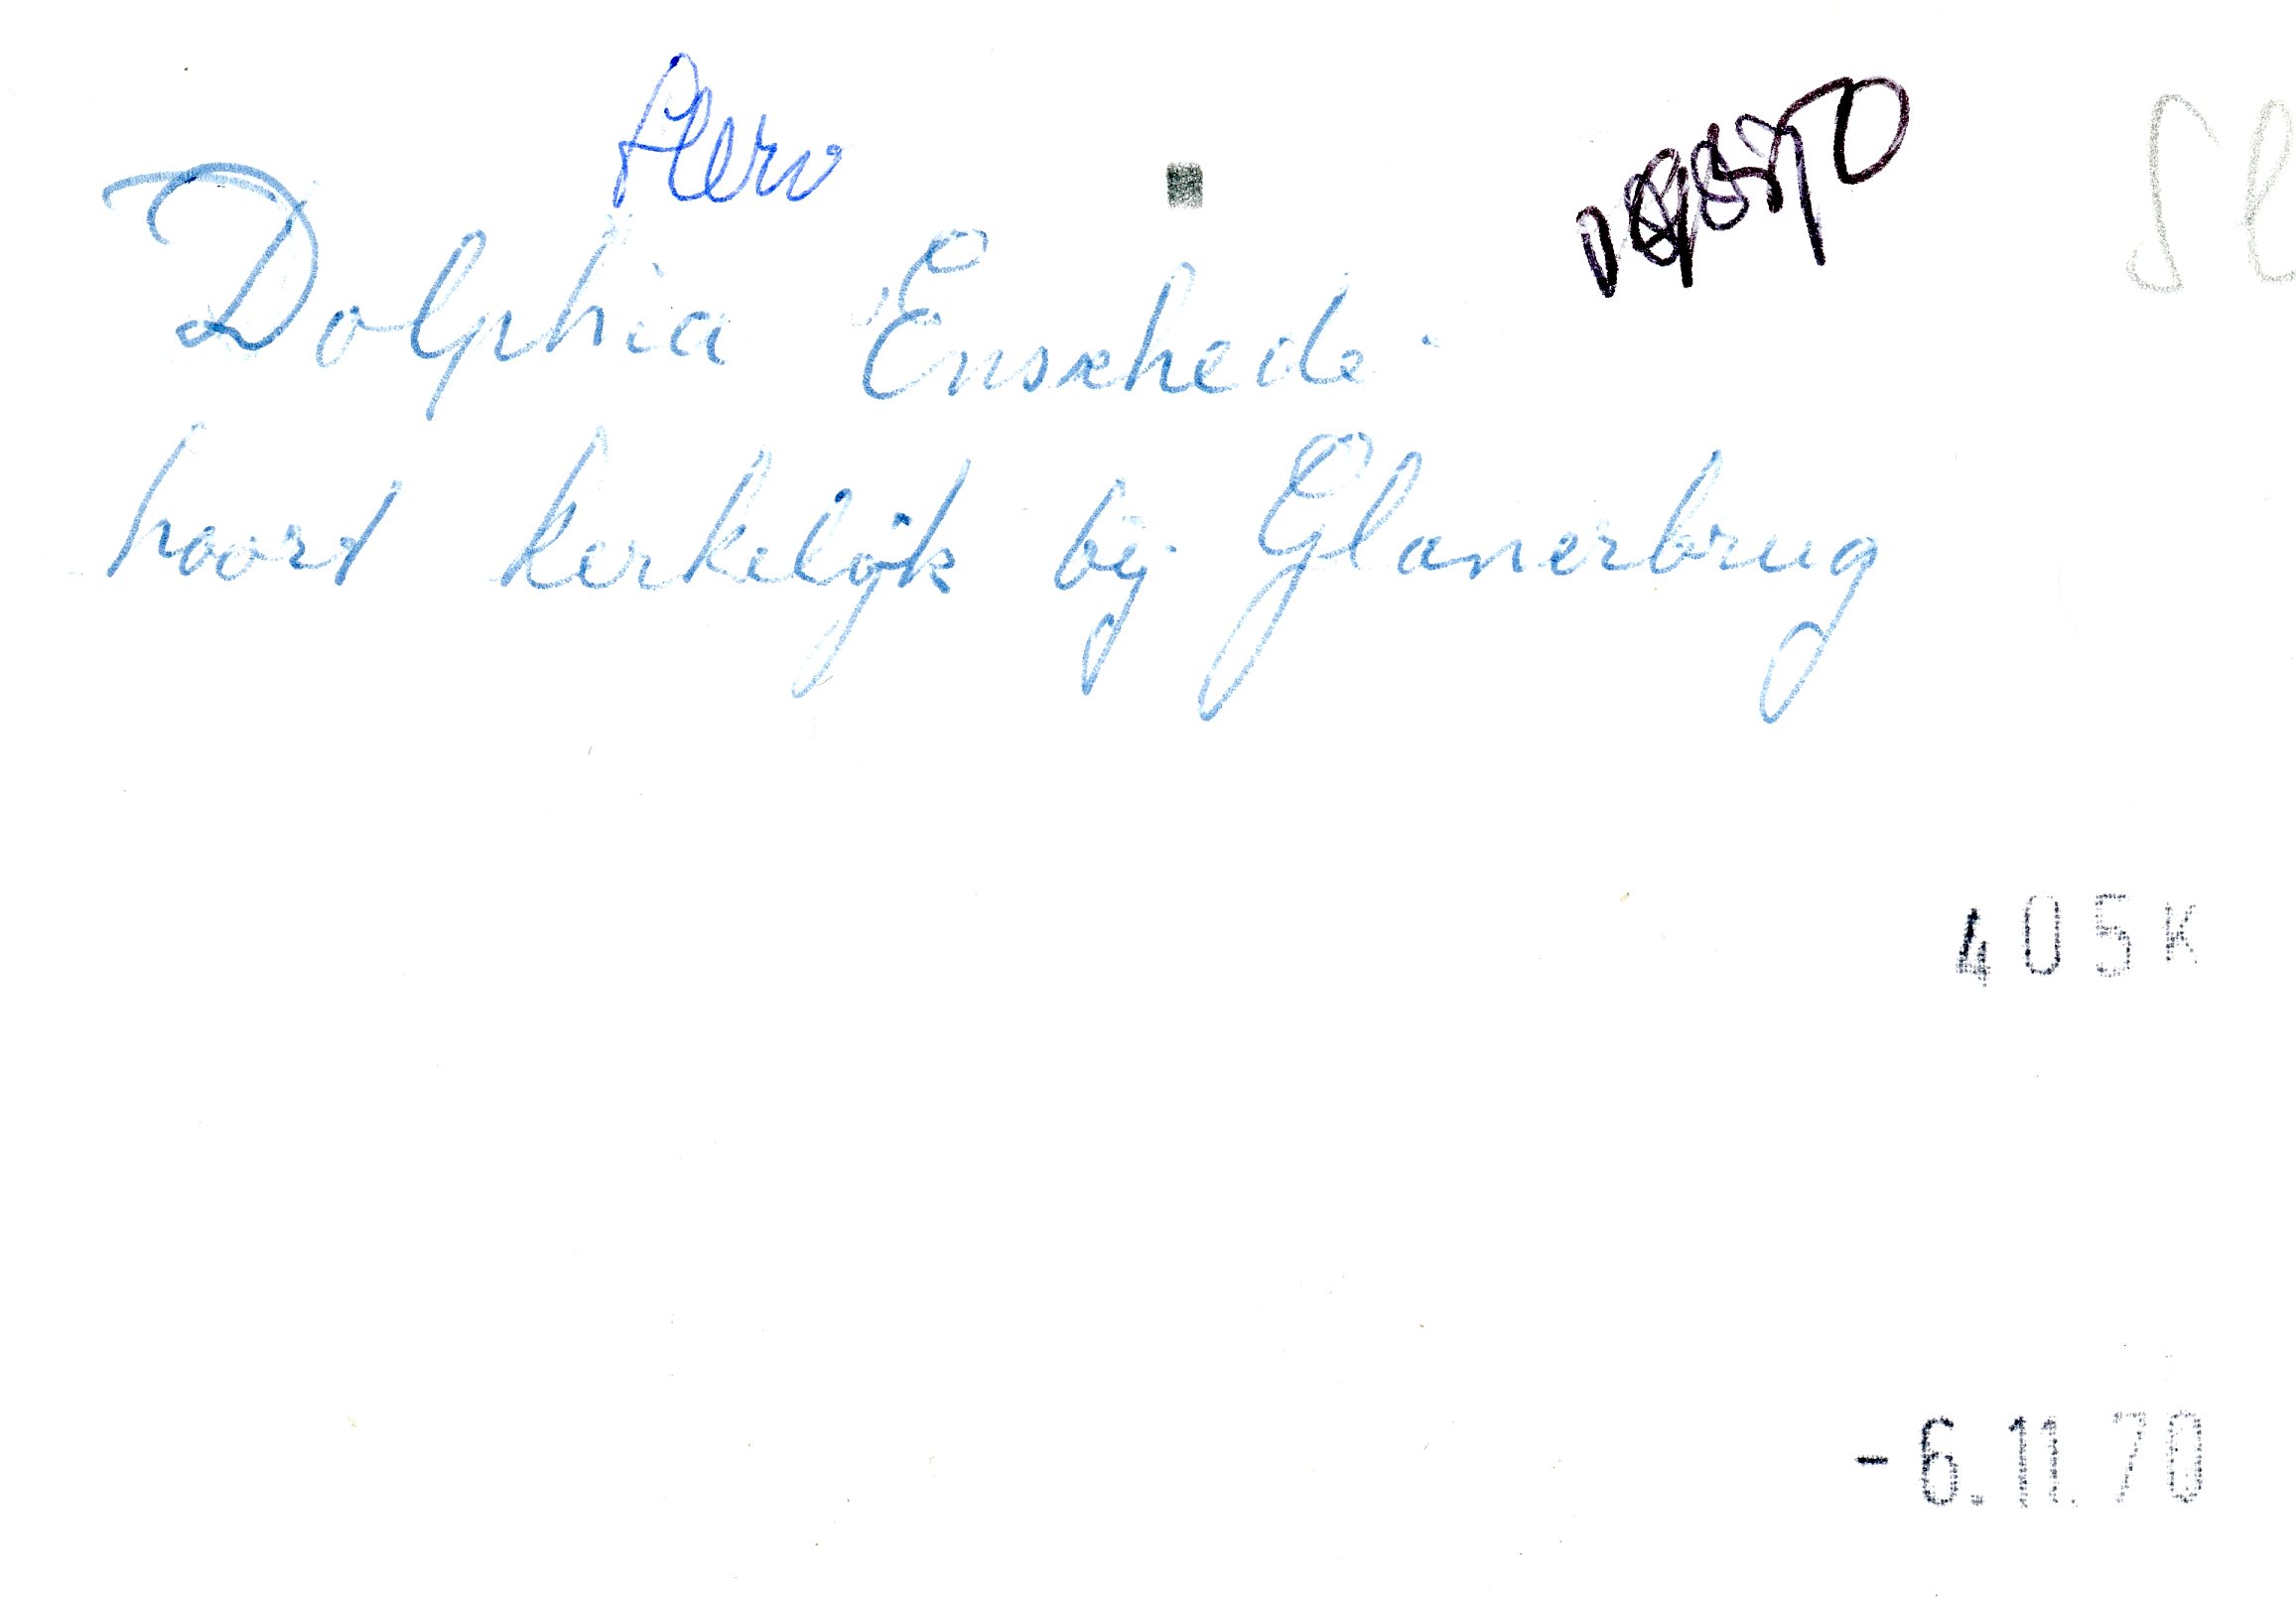 Herv
Dolphia Enschede.
hoort kerkelijk bij Glanerbrug
405K
-6.11.70